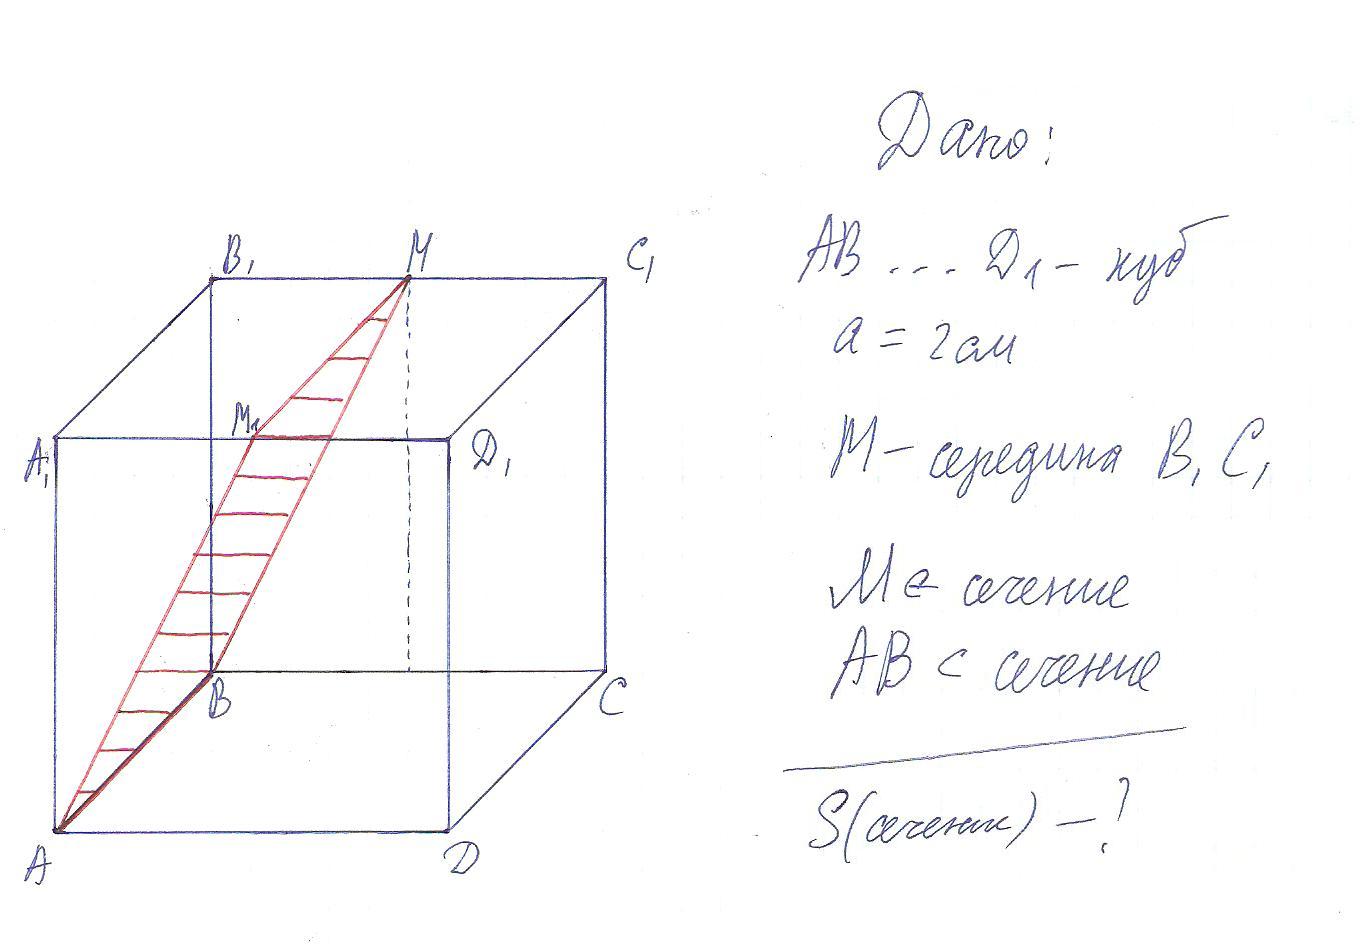 B₁ M C₁
A₁ M₁ D₁
B C
A D
Дано:
AB ... D₁ – куб
a = 2 см
M – середина B₁ C₁
M ∈ сечение
AB ⊂ сечение
S(сечения) – ?